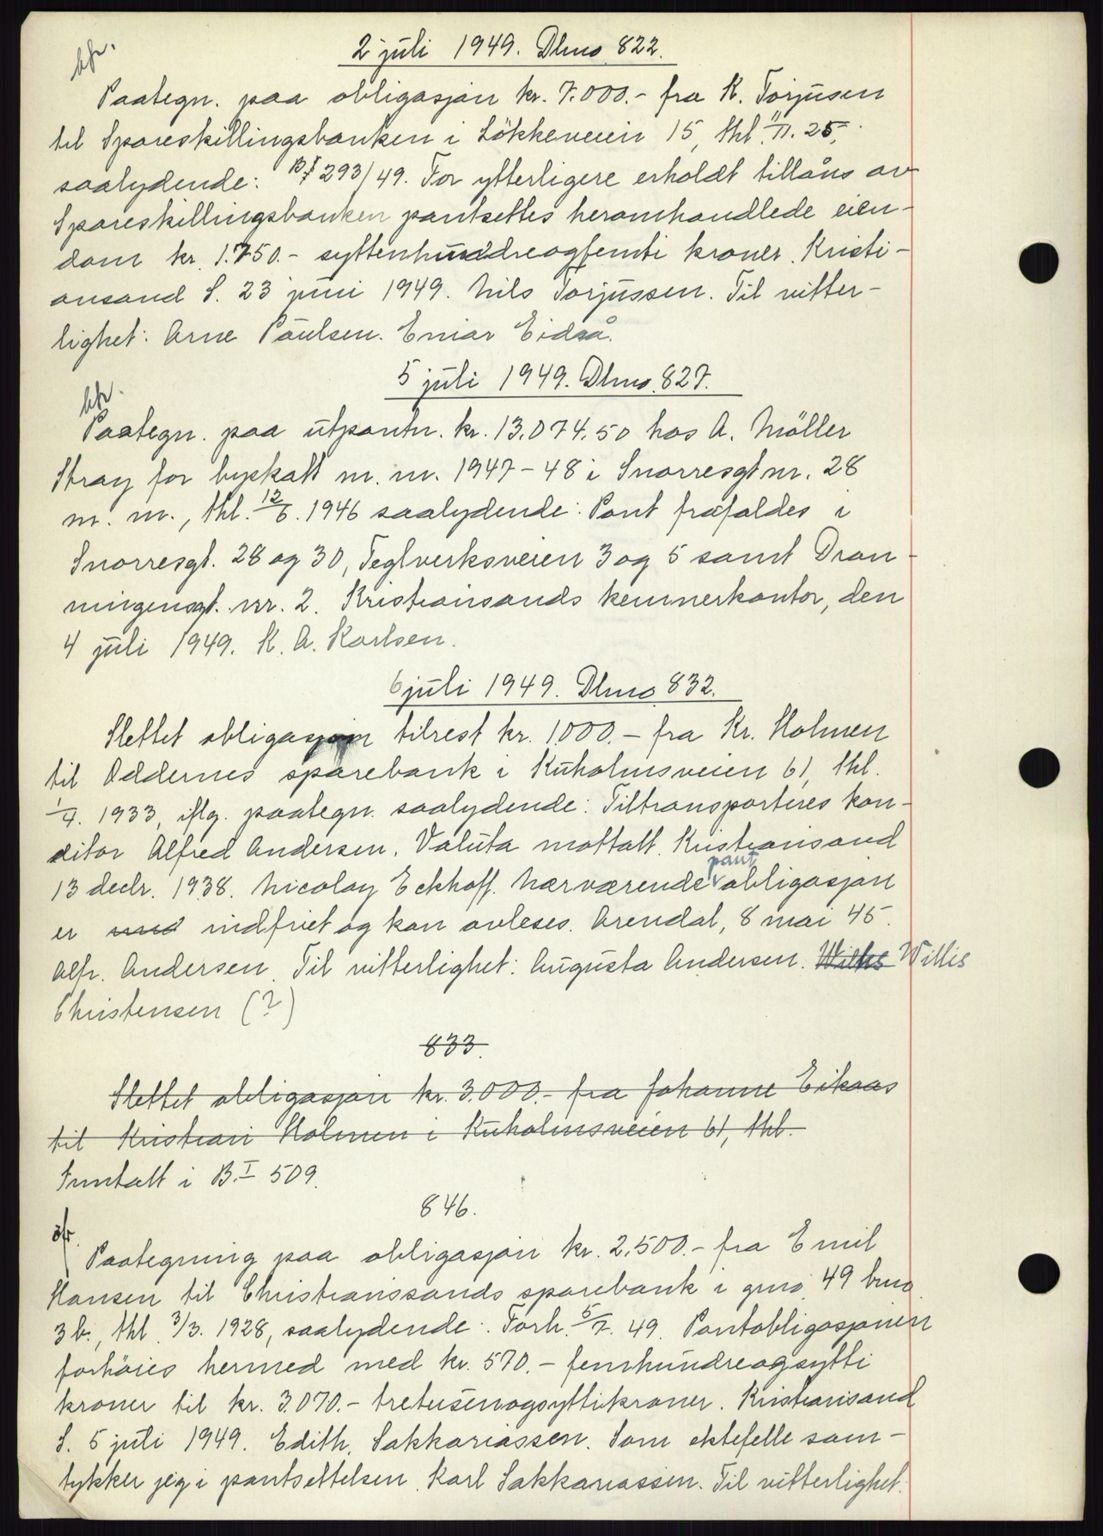 bfr.
2 juli 1949. Dbno. 822.
Paategn. paa obligasjon kr. 7.000.- fra K. Torjusen
til Spareskillingsbanken i Lökkeveien 15, thl. 11/11. 25,
saalydende: B I 293/49. For ytterligere erholdt tillåns av
Spareskillingsbanken pantsettes heromhandlede eien-
dom kr. 1.750.- syttenhundreogfemti kroner. Kristi-
ansand S. 23 juni 1949. Nils Torjussen. Til vitter-
lighet: Arne Paulsen. Einar Eidså.
5 juli 1949. Dbno. 827.
bfr.
Paategn. paa utpantn. kr. 13.074.50 hos A. Möller
Stray for byskatt m. m. 1947-48 i Snorresgt nr. 28
m. m., thl. 12/6. 1946 saalydende: Pant frafaldes i
Snorresgt. 28 og 30, Teglverksveien 3 og 5 samt Dron-
ningensgt. nr. 2. Kristiansands kemnerkontor, den
4 juli 1949. K. A. Karlsen.
6 juli 1949. Dbno. 832.
Slettet obligasjon tilrest kr. 1000.- fra Kr. Holmen
til Oddernes sparebank i Kuholmsveien 61, thl.
1/7. 1933, iflg. paategn. saalydende: Tiltransporteres kon-
ditor Alfred Andersen. Valuta mottatt. Kristiansand
13 decbr. 1938. Nicolay Eckhoff. Nærværende pantobligasjon
er ind indfriet og kan avleses. Arendal, 8 mai 45.
Alfr. Andersen. Til vitterlighet: Augusta Andersen. Willis Willis
Christensen (?)
833.
Slettet obligasjon kr. 3.000.- fra Johanne Eikaas
til Kristian Holmen i Kuholmsveien 61, thl.
Inntatt i B. I 509.
846.
Paategning paa obligasjon kr. 2.500.- fra Emil
Hansen til Christianssands sparebank i gno. 49 bno.
3 b., thl. 3/3. 1928, saalydende: Forh. 5/7. 49. Pantobligasjonen
forhöies hermed med kr. 570.- femhundreogsytti
kroner til kr. 3.070.- tretusenogsyttikroner. Kristiansand
S. 5 juli 1949. Edith. Sakkariassen. Som ektefelle sam-
tykker jeg i pantsettelsen. Karl Sakkariassen. Til vitterlighet: